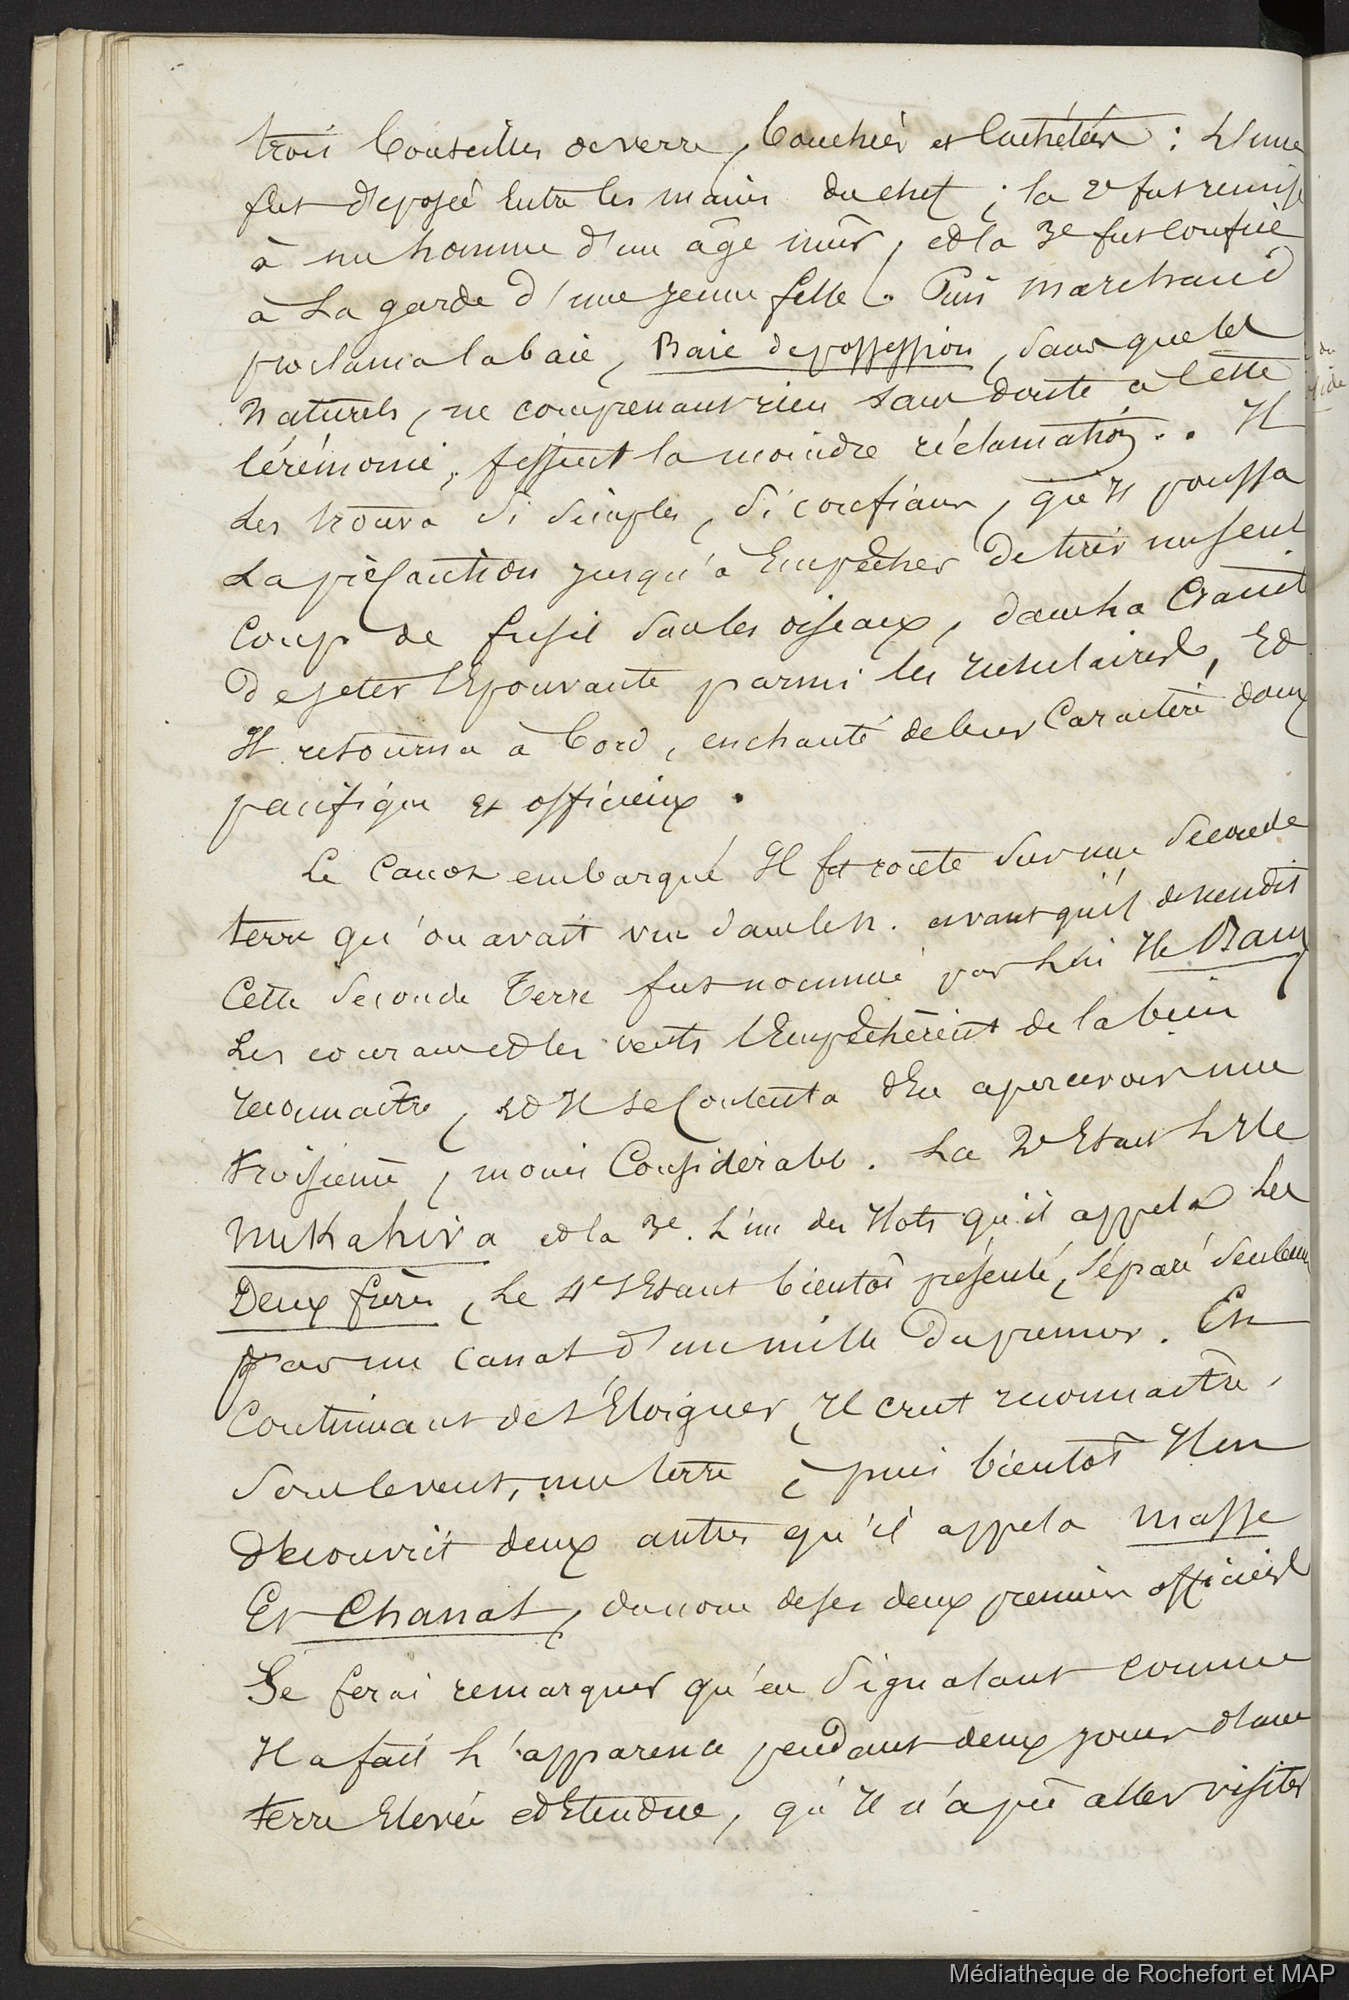 trois bouteilles de verre, bouchées et cachetées : L'une
fut déposée entre les mains du chef ; la 2e fut remise
à un homme d'un âge mûr, et la 3e fut confiée
à La garde d'une jeune fille. Puis Marchand
proclama la baie, Baie de possession, sans que les
Naturels, ne comprenant rien sans doute à cette
cérémonie, fissent la moindre réclamation.. Il
Les trouva si simples, si confians, qu'il poussa
La précaution jusqu'à Empêcher de tirer un seul
coup de fusil sur les oiseaux, dans La Crainte
de jeter l'Epouvante parmi les insulaires, Et
Il retourna à bord, enchanté de leur Caractère doux
pacifique et officieux.
Le canot embarqué Il fit route sur une seconde
terre qu'on avait vue dans le n. avant qu'il descendit
Cette seconde Terre fut nommée par Lui Ile Baux
Les courans et les vents l'Empêchèrent de la bien
reconnaître, et Il se Contenta d'En apercevoir une
troisième, moins Considérable. La 2e Etait L'Ile
Nukahiva et la 3e. L'un des Ilots qu'il appela Les
Deux frères, Le 4e s'Etant bientôt présenté, séparé seulem
par un canal d'un mille du premier. En
Continuant de s'Eloigner, Il crut reconnaître,
sous le vent, une terre ; puis bientôt Il en
découvrit deux autres qu'il appela Masse
Et Chanal, du nom de ses deux premiers officiers
Je ferai remarquer qu'en signalant comme
Il a fait L'apparence pendant deux jours d'une
terre Elevée et Etendue, qu'Il n'a pu aller visiter
Médiathèque de Rochefort et MAP